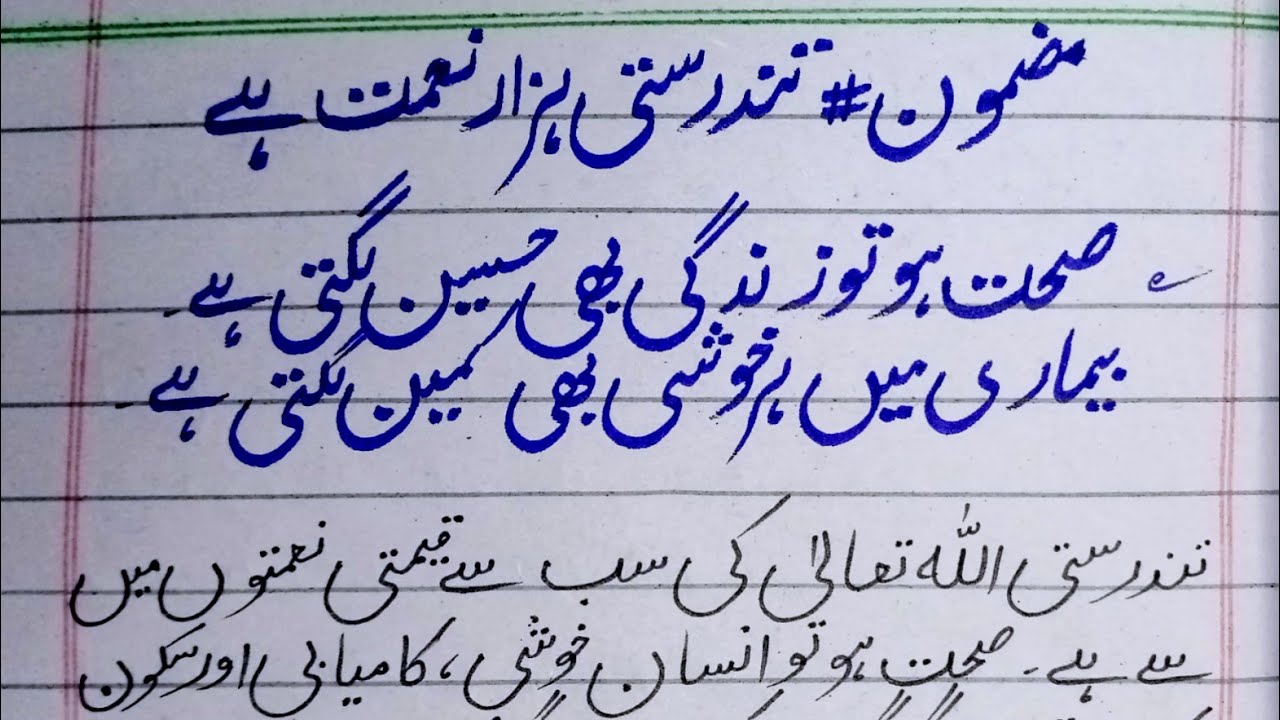 مضمون # تندرستی ہزار نعمت ہے
صحت ہو تو زندگی بھی حسین لگتی ہے۔
بیماری میں ہر خوشی بھی کمین لگتی ہے۔
تندرستی اللہ تعالیٰ کی سب سے قیمتی نعمتوں میں
سے ہے۔ صحت ہو تو انسان خوشی، کامیابی اور سکون